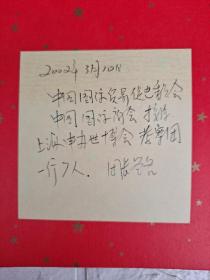 2002年3月10日
中国国际贸易促进委会
中国国际商会
上海申办世博会考察团
一行7人.